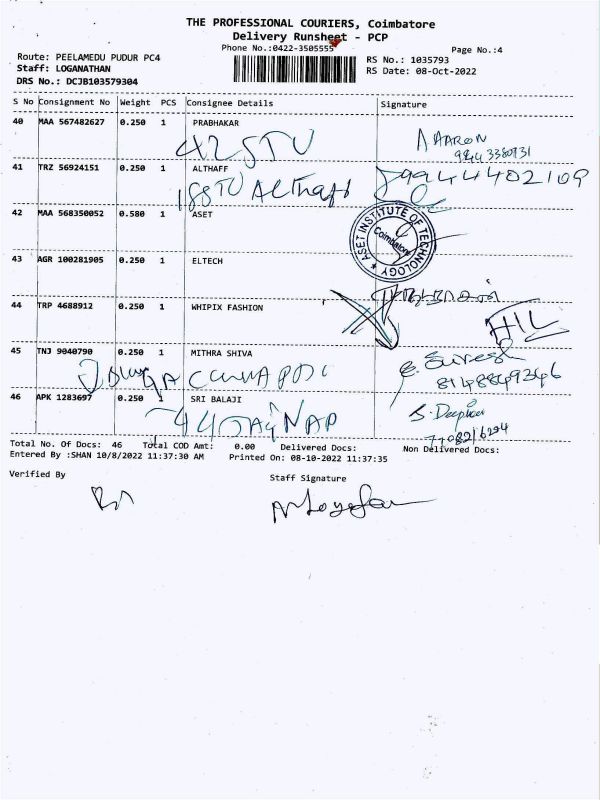 THE PROFESSIONAL COURIERS, Coimbatore
Delivery Runsheet - PCP
Phone No.:0422-3505555
Page No.:4
Route: PEELAMEDU PUDUR PC4
RS No.: 1035793
Staff: LOGANATHAN
RS Date: 08-Oct-2022
DRS No.: DCJB103579304
S No Consignment No Weight PCS Consignee Details Signature
40 MAA 567482627 0.250 1 PRABHAKAR
42 STU
AARON
41 TRZ 56924151 0.250 1 ALTHAFF
9944402109
188 TU Althaft
42 MAA 568350052 0.580 1 ASET
ASET INSTITUTE OF TECHNOLOGY
Coimbatore
43 AGR 100281905 0.250 1 ELTECH
44 TRP 4688912 0.250 1 WHIPIX FASHION
HIL
45 TNJ 9040790 0.250 1 MITHRA SHIVA
E. Suresh
8148849346
46 APK 1283697 0.250 1 SRI BALAJI
S. Deepika
7708216294
Total No. Of Docs: 46 Total COD Amt: 0.00 Delivered Docs: Non Delivered Docs:
Entered By :SHAN 10/8/2022 11:37:30 AM Printed On: 08-10-2022 11:37:35
Verified By
Staff Signature